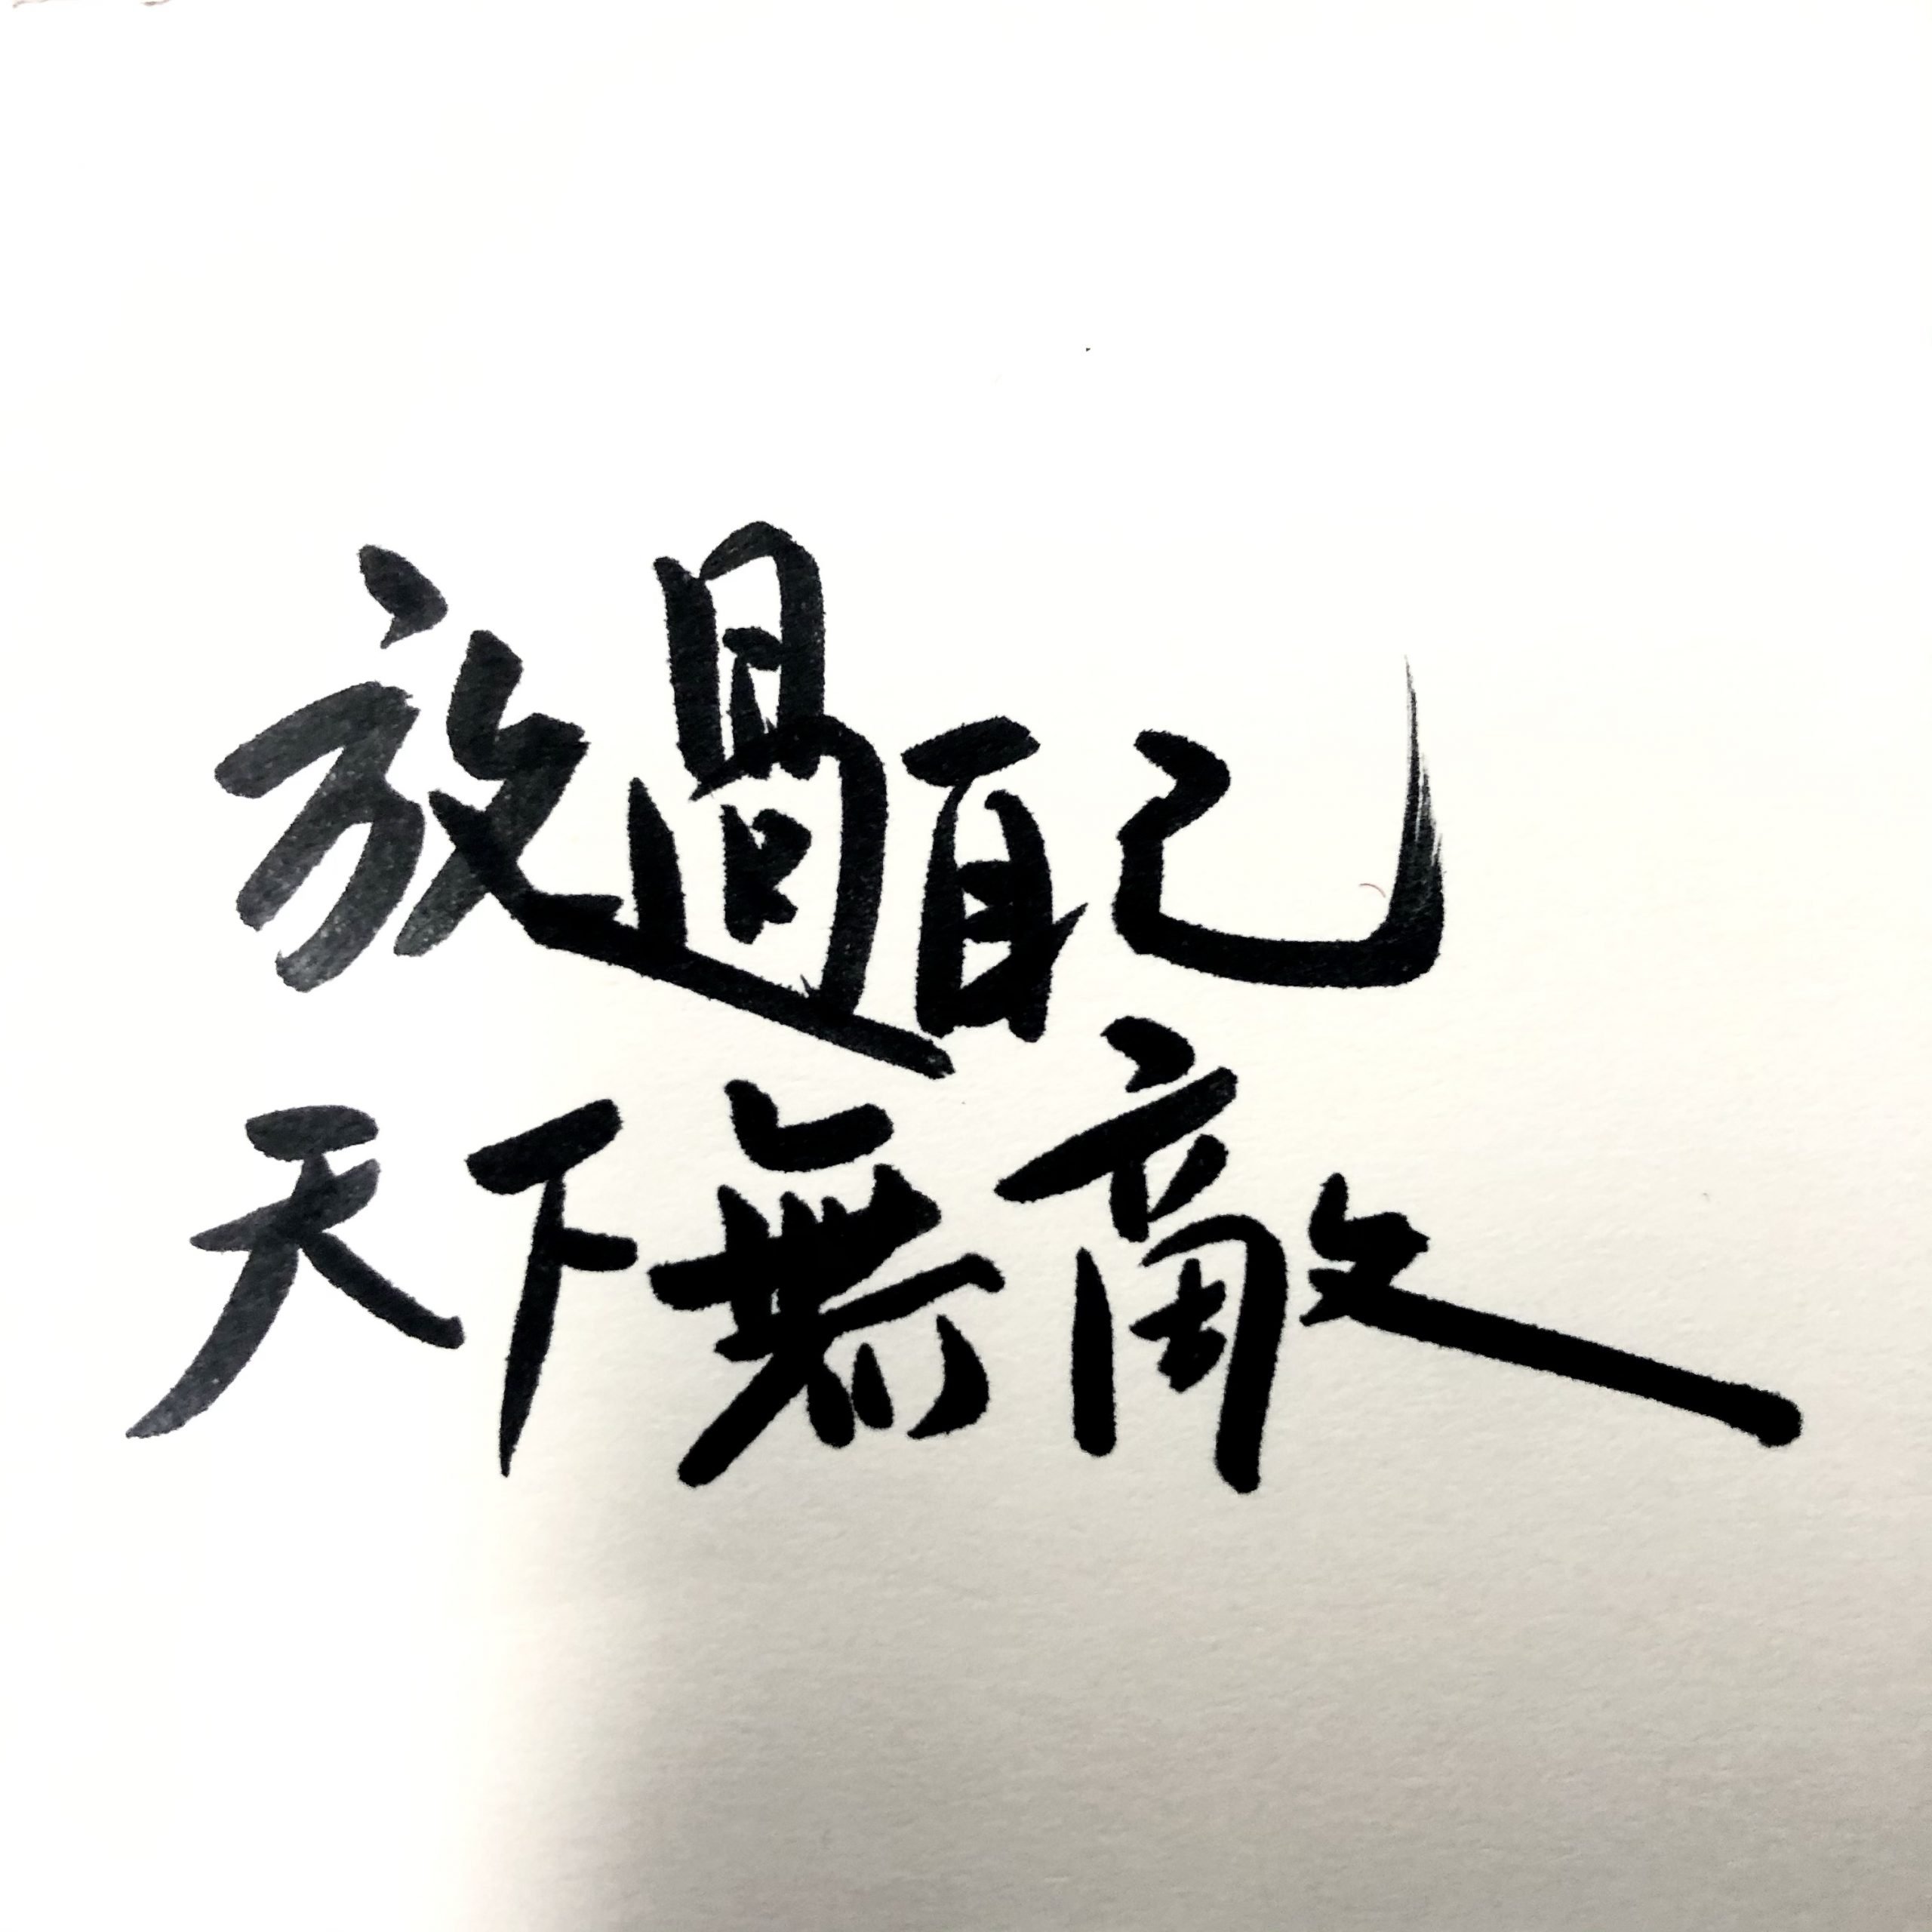 放過自己
天下無敵